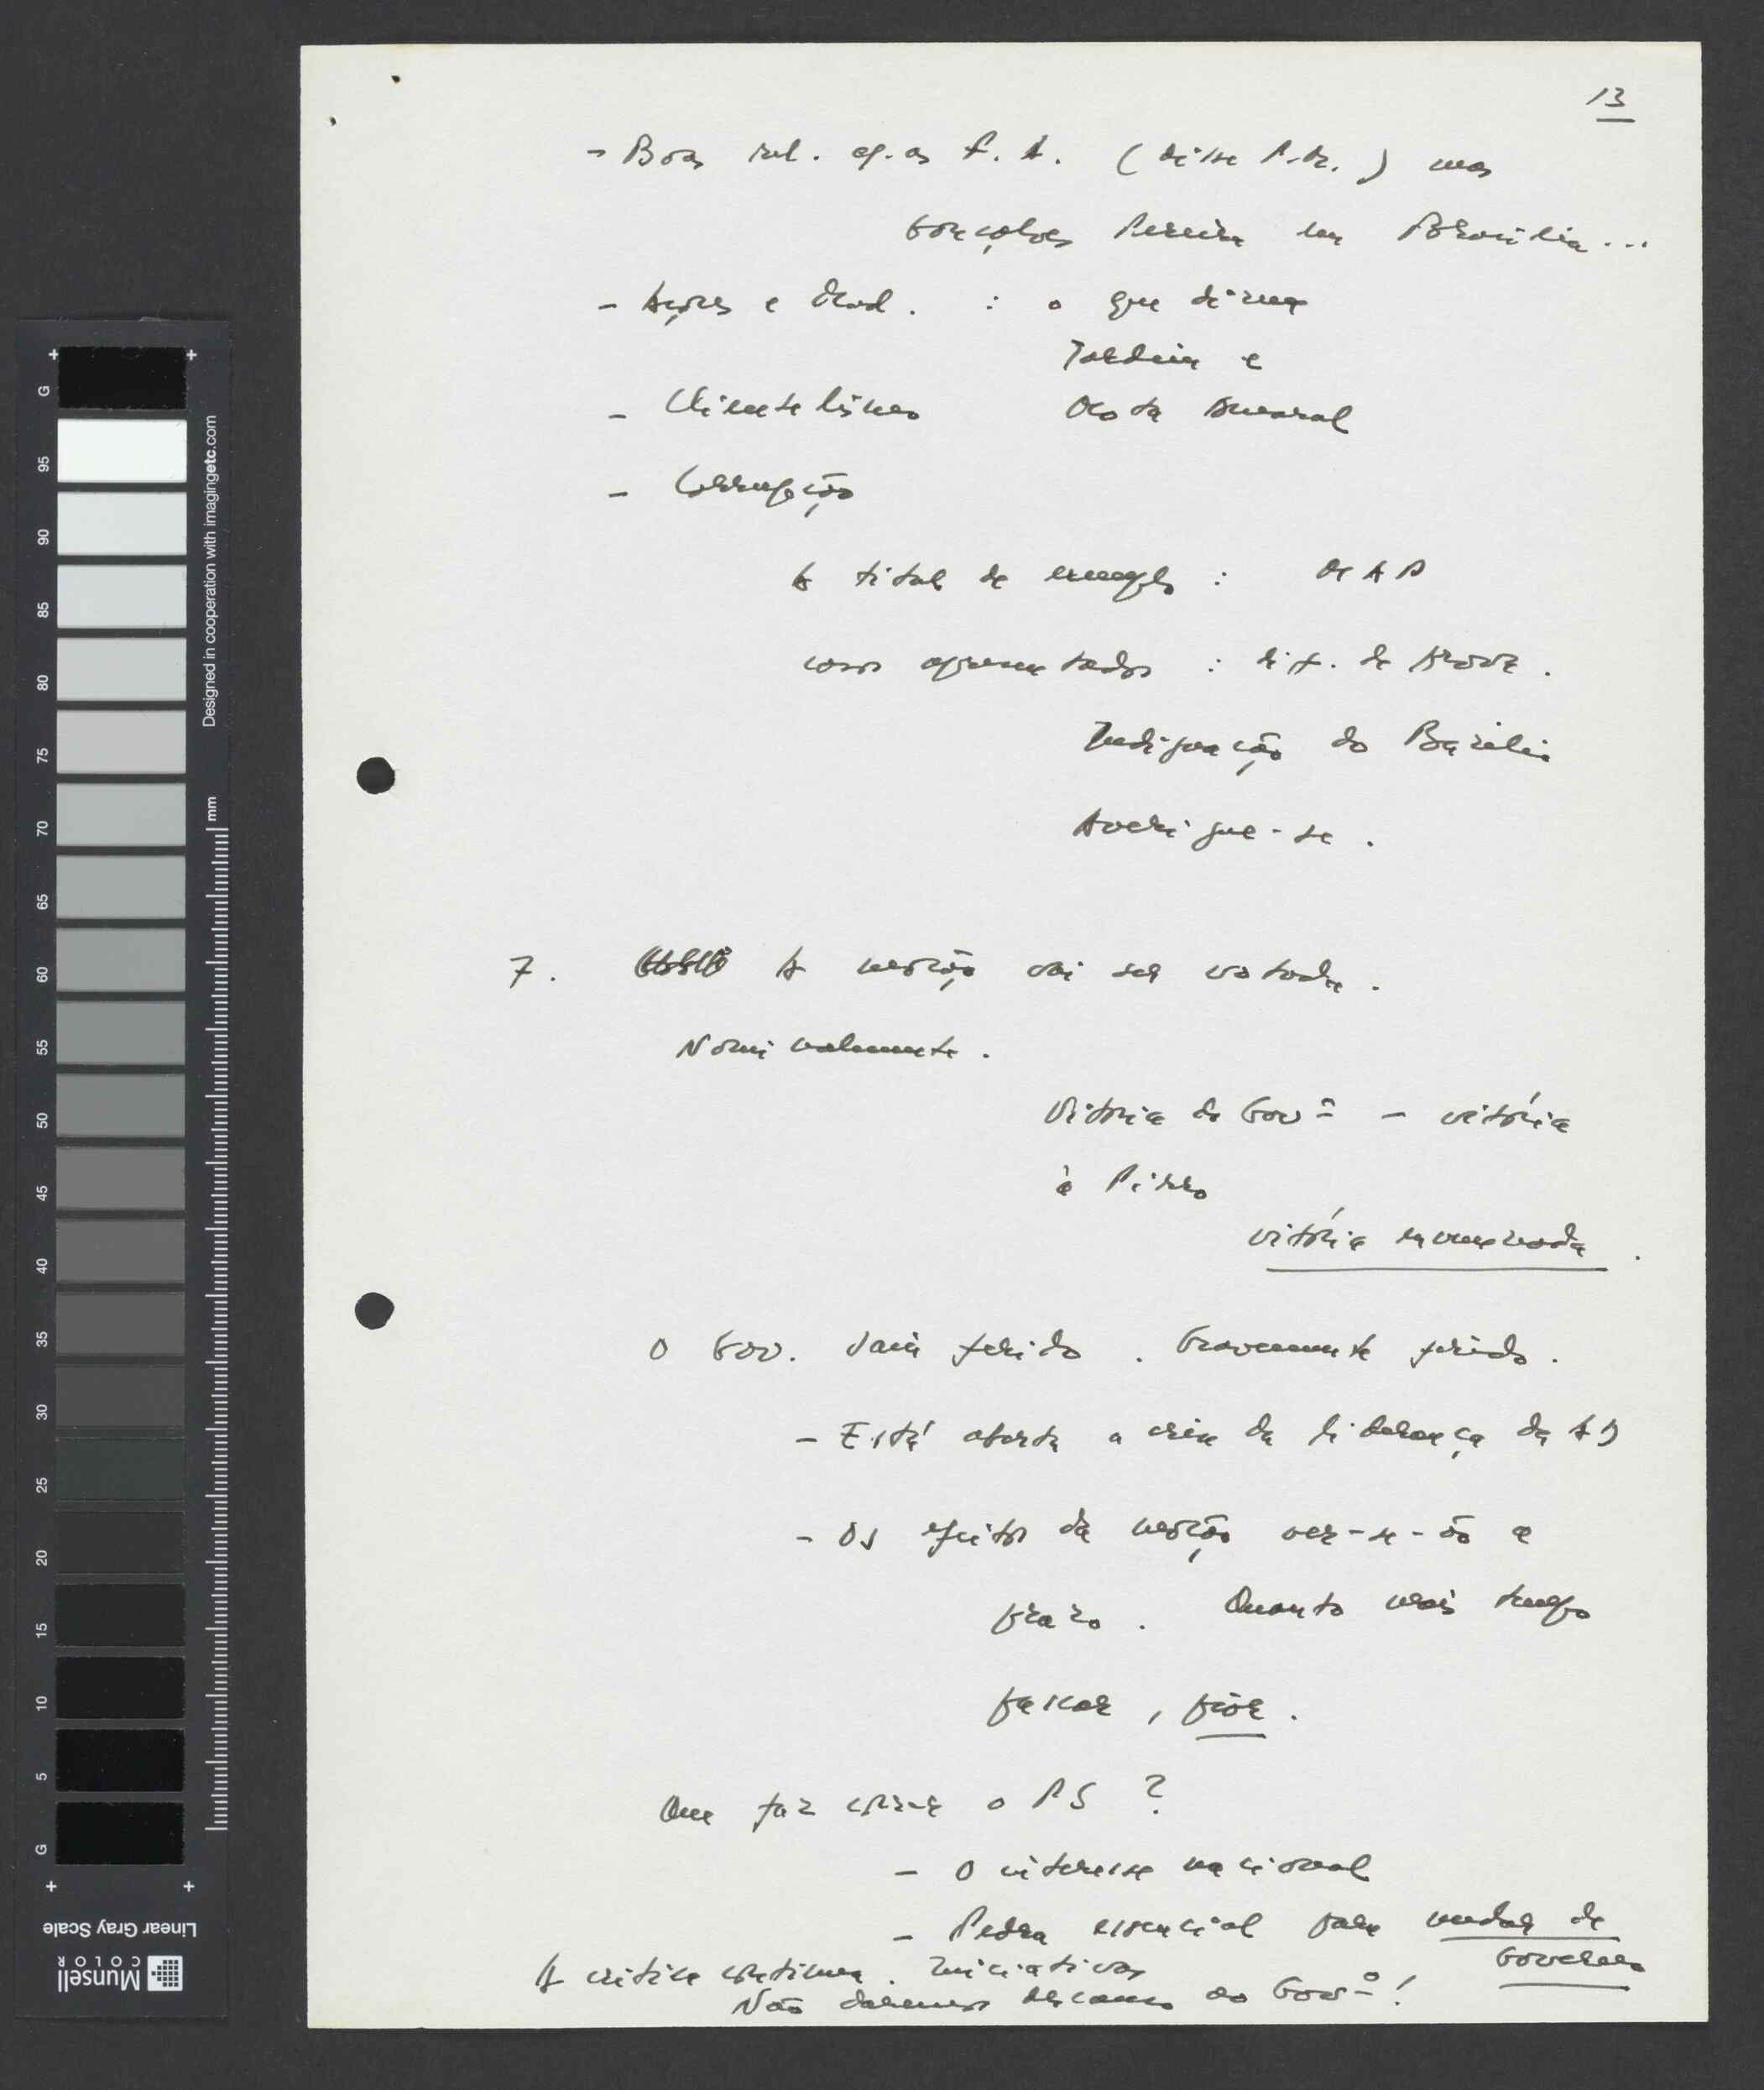 13
- Boas rel. c/. as F. A. (disse P.M.) mas
Gonçalves Pereira em Brasília...
- Açores e Mad. : o que dirmos
Jardim e
- Clientelismo Mota Amaral
- Corrupção
A título de exemplo : MAP
casos apresentados : dif. de provar.
Indignação do Basílio
Averigue-se.
7. A moção vai ser votada.
Nominalmente.
Vitória do Govº - vitória
à Pirro
vitória envenenada.
O Gov. saiu ferido. Gravemente ferido.
- Está aberta a crise da liderança da AD
- Os efeitos da moção ver-se-ão a
prazo. Quanto mais tempo
passar, pior.
Que faz correr o PS ?
- O interesse nacional
- Pedra essencial para mudar de
Governo
A crítica continua. Iniciativas
Não daremos descanso ao Govº!
G 95 90 85 80 75 70 65 60 55 50 45 40 35 30 25 20 15 10 5 G
mm
Designed in cooperation with imagingetc.com
Munsell
COLOR
Linear Gray Scale